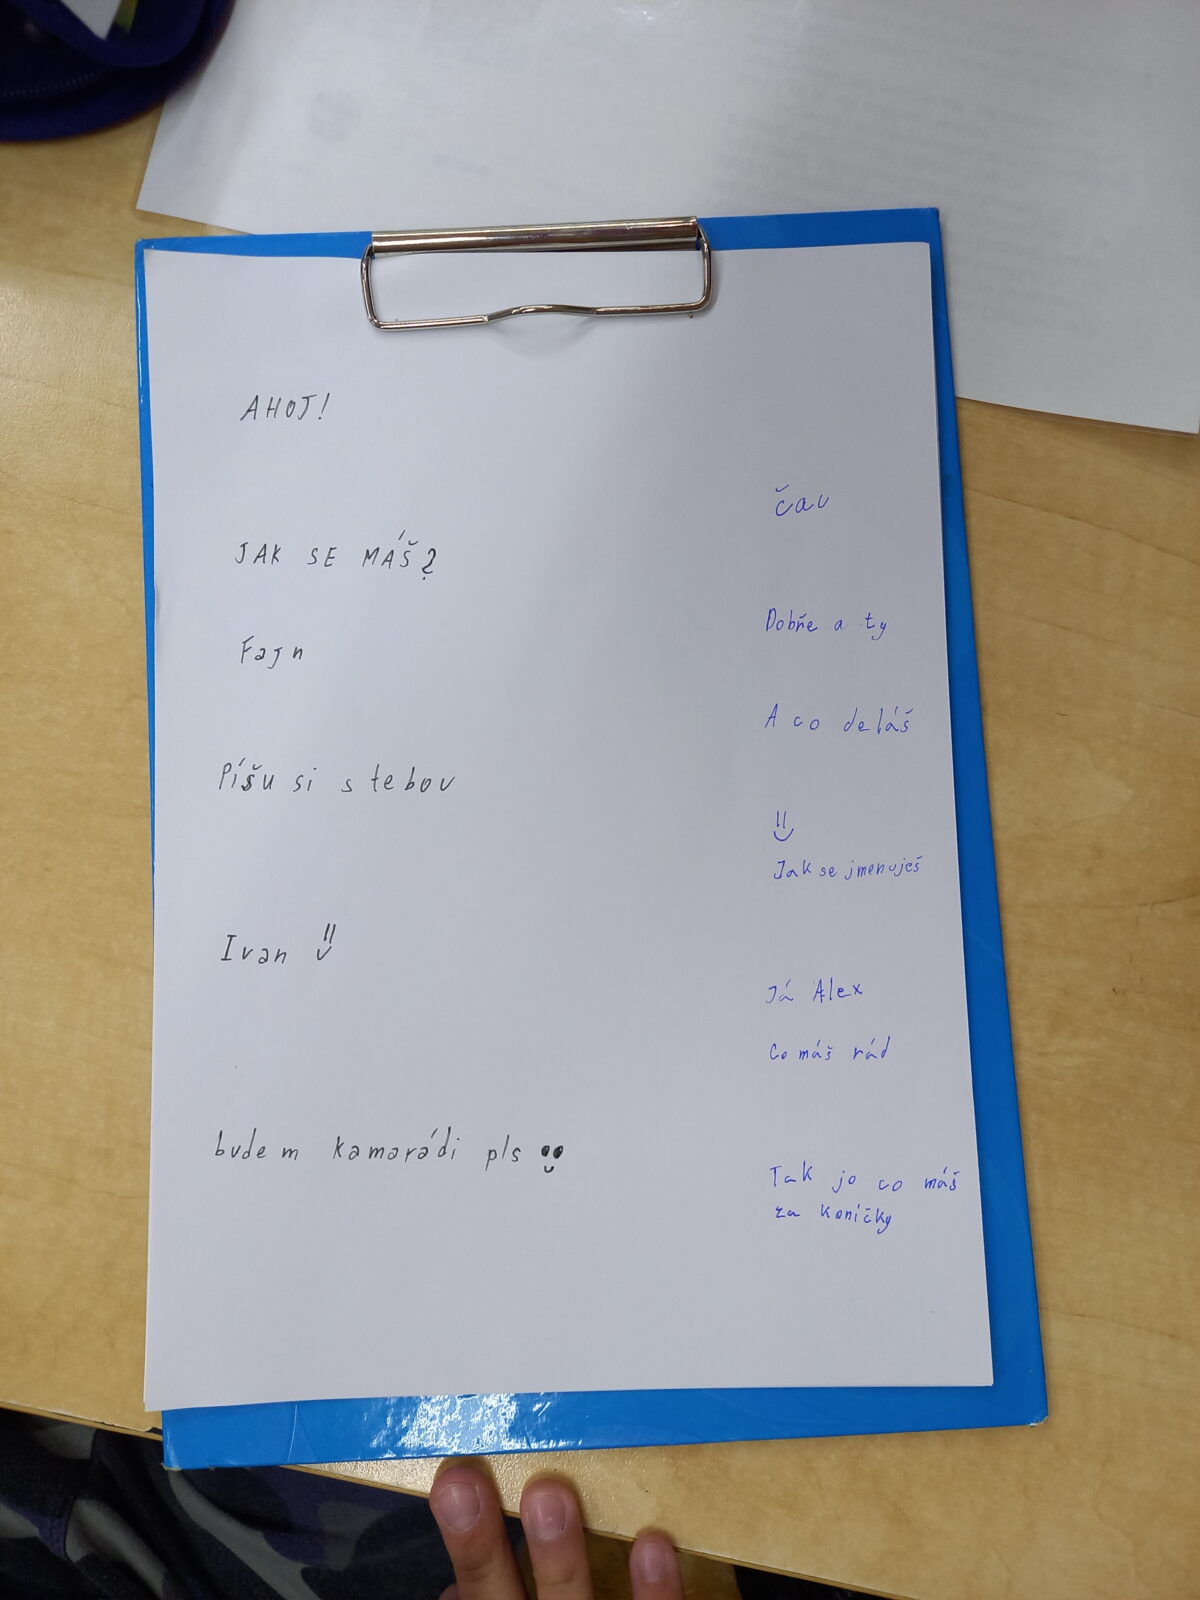 AHOJ!
čau
JAK SE MÁŠ?
Dobře a ty
Fajn
A co deláš
Píšu si s tebou
Jak se jmenuješ
Ivan
Já Alex
Co máš rád
budem kamarádi pls
Tak jo co máš
za koníčky